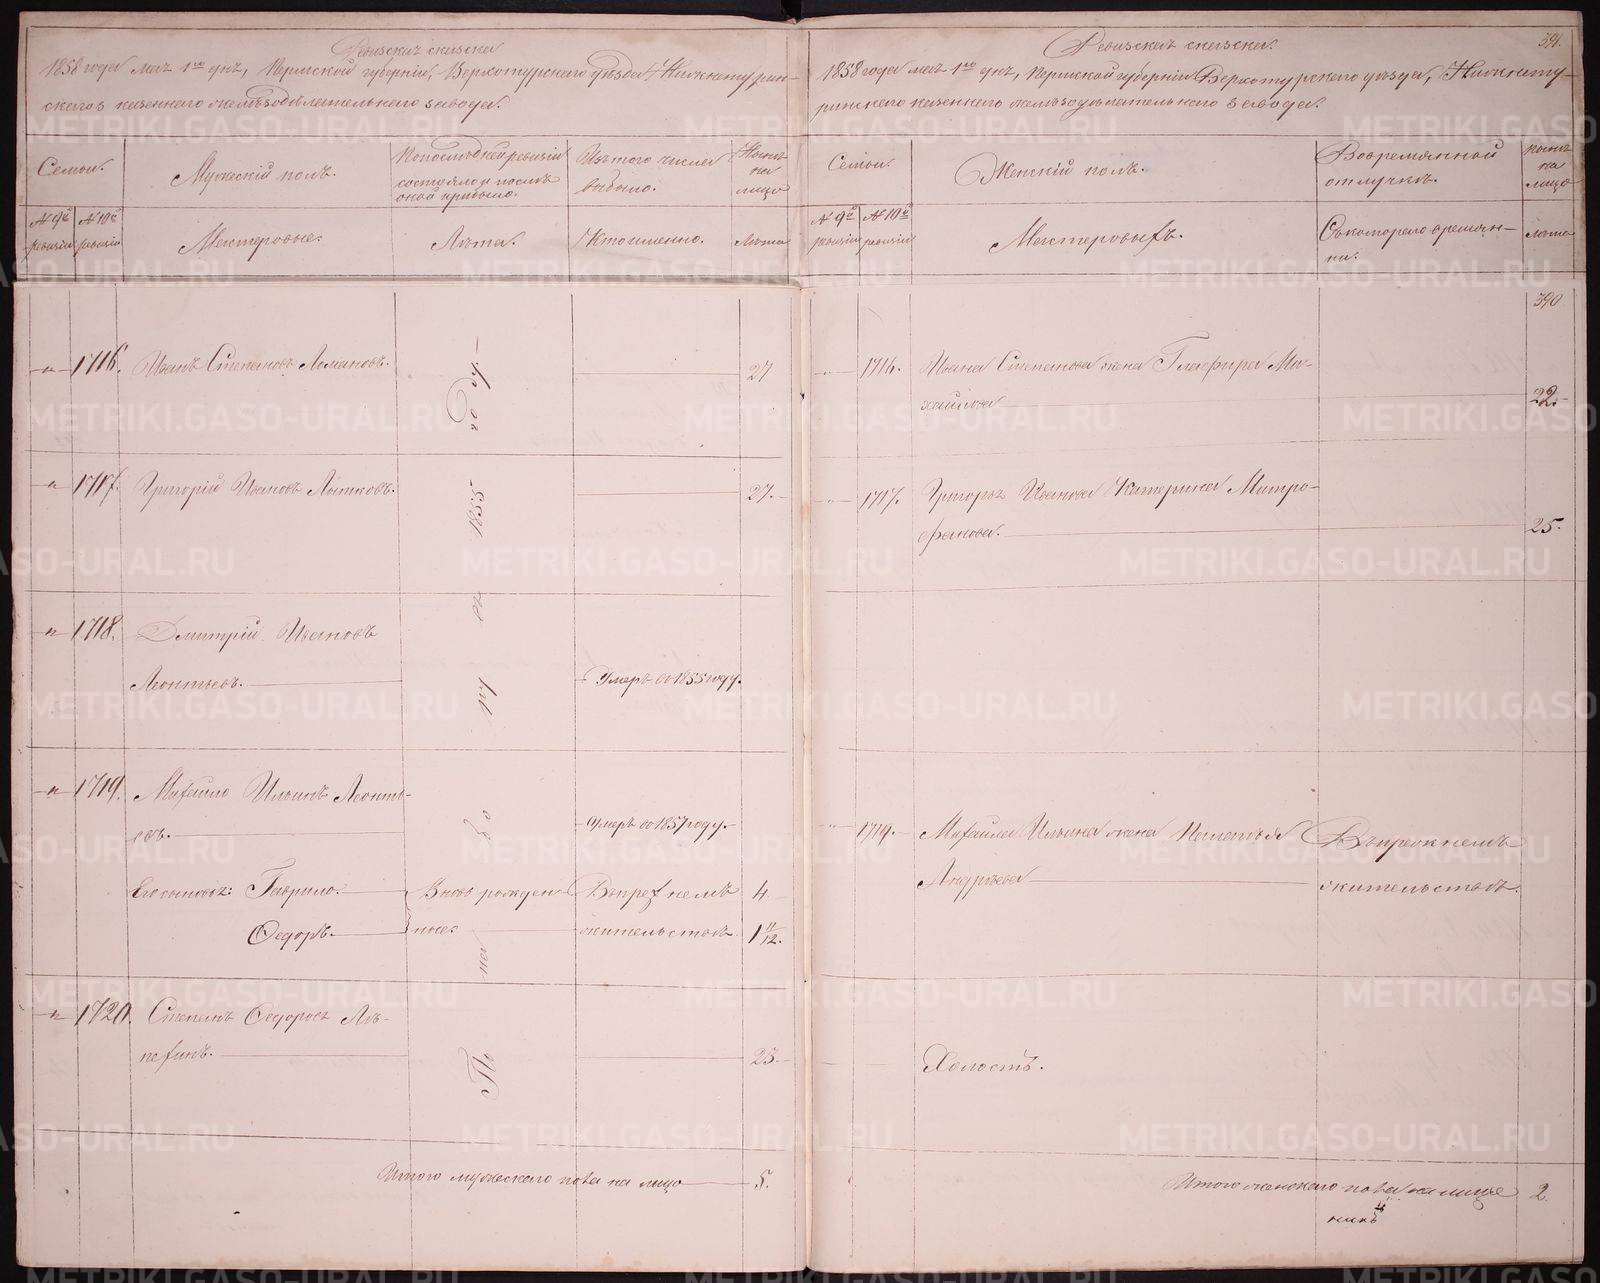 Ревизская сказка
1858 года мая 1го дня, Пермской губерніи, Верхотурскаго уѣзда, Нижнетурин-
скаго казеннаго желѣзодѣлательнаго завода.
Семьи.
Мужескій полъ.
По последней ревизіи
состояло и послѣ
оной прибыло.
Изъ того числа
выбыло.
Нынѣ
на
лицо
№ 9й
ревизіи
№ 10й
ревизіи
Мастеровые.
Лѣта.
Кто именно.
Лѣта
1716. Иванъ Степановъ Ломановъ. 27
1717. Григорій Ивановъ Лытковъ. 27.
1718. Дмитрій Ивановъ
Леонтьевъ. Умеръ въ 1855 году.
1719. Михайло Ильинъ Леонть-
евъ. Умеръ въ 1857 году.
Его сыновья: Гаврило. Вновь рожден- Въ прежнемъ 4
Ѳедоръ. ные. жительствѣ 1 11/12.
1720. Степанъ Ѳедоровъ Ля-
пехинъ. 23.
По
1855
Итого мужескаго пола на лицо 5.
Ревизская сказка. 391.
1858 года мая 1го дня, Пермской губерніи Верхотурскаго уѣзда, Нижнету-
ринскаго казеннаго желѣзодѣлательнаго завода.
Семьи.
Женскій полъ.
Во временной
отлучкѣ.
Нынѣ
на
лицо
№ 9й
ревизіи
№ 10й
ревизіи
Мастеровыхъ.
Съ котораго времян-
ни.
Лѣта
390
1716. Ивана Степанова жена Глафира Ми-
хайлова 22.
1717. Григорья Иванова Катерина Митро-
фанова. 25.
1719. Михайла Ильина жена Наталья Въ прежнемъ
Андреева жительствѣ.
Холостъ.
Итого женскаго пола на лице 2